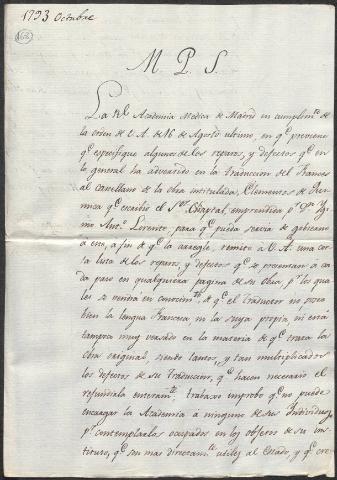 1793 Octubre
M. P. S.
La Rl. Academia Medica de Madrid en cumplimto. de
la orden de V. A. de 16 de Agosto ultimo, en qe. previene
qe. especifique algunos de los reparos, y defectos qe. en
lo general ha advertido en la traduccion del Frances
al castellano de la obra intitulada, Elementos de Chi-
mica qe. escribió el Sor. Chaptal, emprendida pr. Dn. Hygi-
nio Anto. Lorente, para qe. pueda servir de gobierno
a este, a fin de qe. la arregle, remite a V. A. una cor-
ta lista de los reparos, y defectos qe. se presentan a ca-
da paso en qualquiera pagina de su obra, pr. los qua
les se vendrá en conocimto. de qe. el traductor no posee
bien la lengua Francesa, ni la suya propia, ni está
tampoco muy versado en la materia de qe. trata la
obra original, siendo tantos, y tan multiplicados
los defectos de su traduccion, qe. hacen necesario el
refundirla enteramte. trabajo improbo qe. no puede
encargar la Academia a ninguno de sus Individuos,
pr. contemplarlos ocupados en los objetos de su ins-
tituto, qe. son mas directamte. utiles al Estado, y qe. cre-